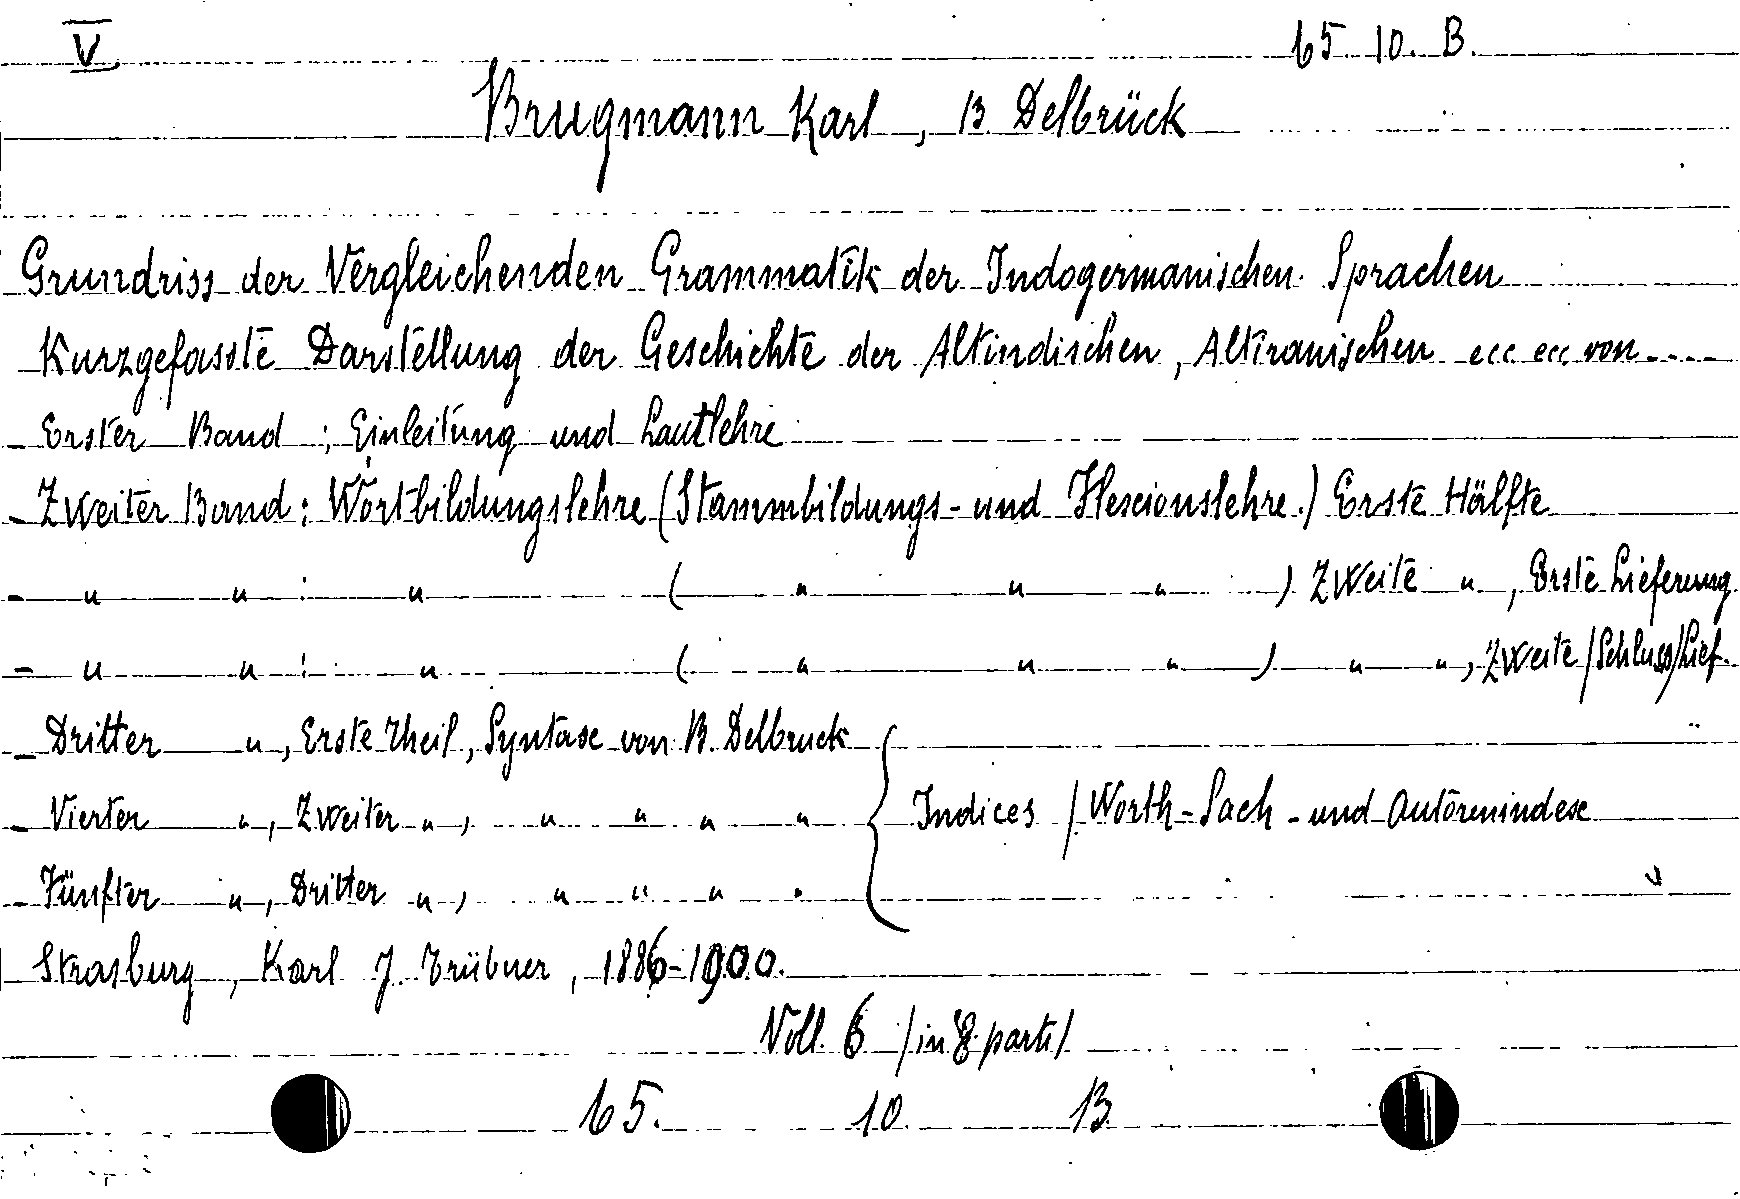 V 65 10. B.
Brugmann Karl, B Delbrück
Grundriss der Vergleichenden Grammatik der Indogermanischen Sprachen
Kurzgefasste Darstellung der Geschichte der Altindischen, Altiranischen ecc ecc von....
- Erster Band: Einleitung und Lautlehre
- Zweiter Band: Wortbildungslehre (Stammbildungs- und Flexionslehre.) Erste Hälfte
- " " : " ( " " " ) Zweite " , Erste Lieferung
- " " : " ( " " " ) " " , Zweite /Schluss/Lief.
- Dritter " , Erste Theil, Syntax von B. Delbruck
- Vierter " , Zweiter " , " " " " { Indices / Worth-Sach-und Autorenindex
- Fünfter " , Dritter " , " " " "
Strasburg, Karl J. Trübner, 1886-1900.
Voll. 6 /in 8 parti/
65. 10. B